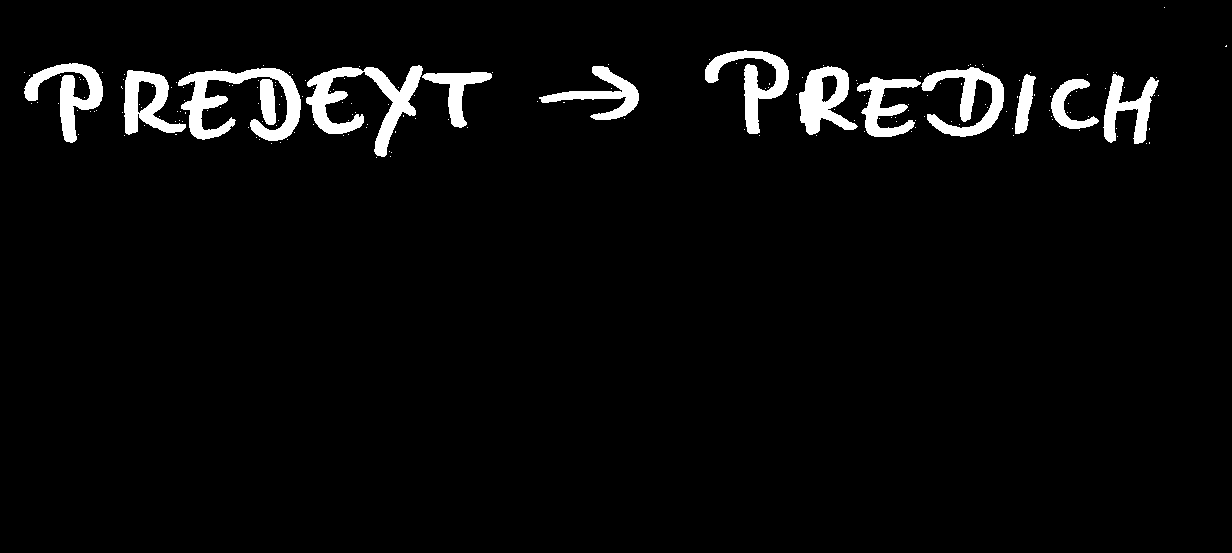 PREDEXT → PREDICH